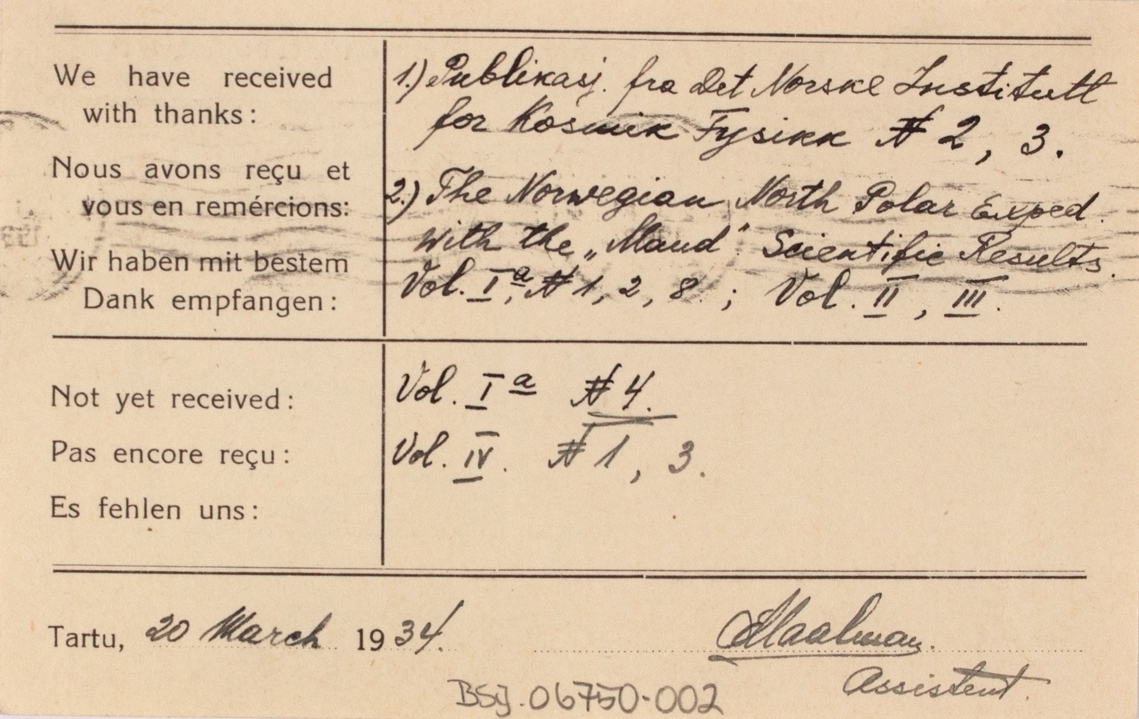 We have received
with thanks:
1.) Publikasj. fra Det Norske Institutt
for Kosmik Fysikk # 2, 3.
Nous avons reçu et
vous en remércions:
2.) The Norwegian North Polar Exped.
with the „Maud" Scientific Results.
Wir haben mit bestem
Dank empfangen:
Vol. Iª, # 1, 2, 8. ; Vol. II, III.
Not yet received:
Vol. Iª # 4.
Pas encore reçu:
Vol. IV. # 1, 3.
Es fehlen uns:
Tartu, 20 March 1934.
Assistent.
BSJ.06750-002